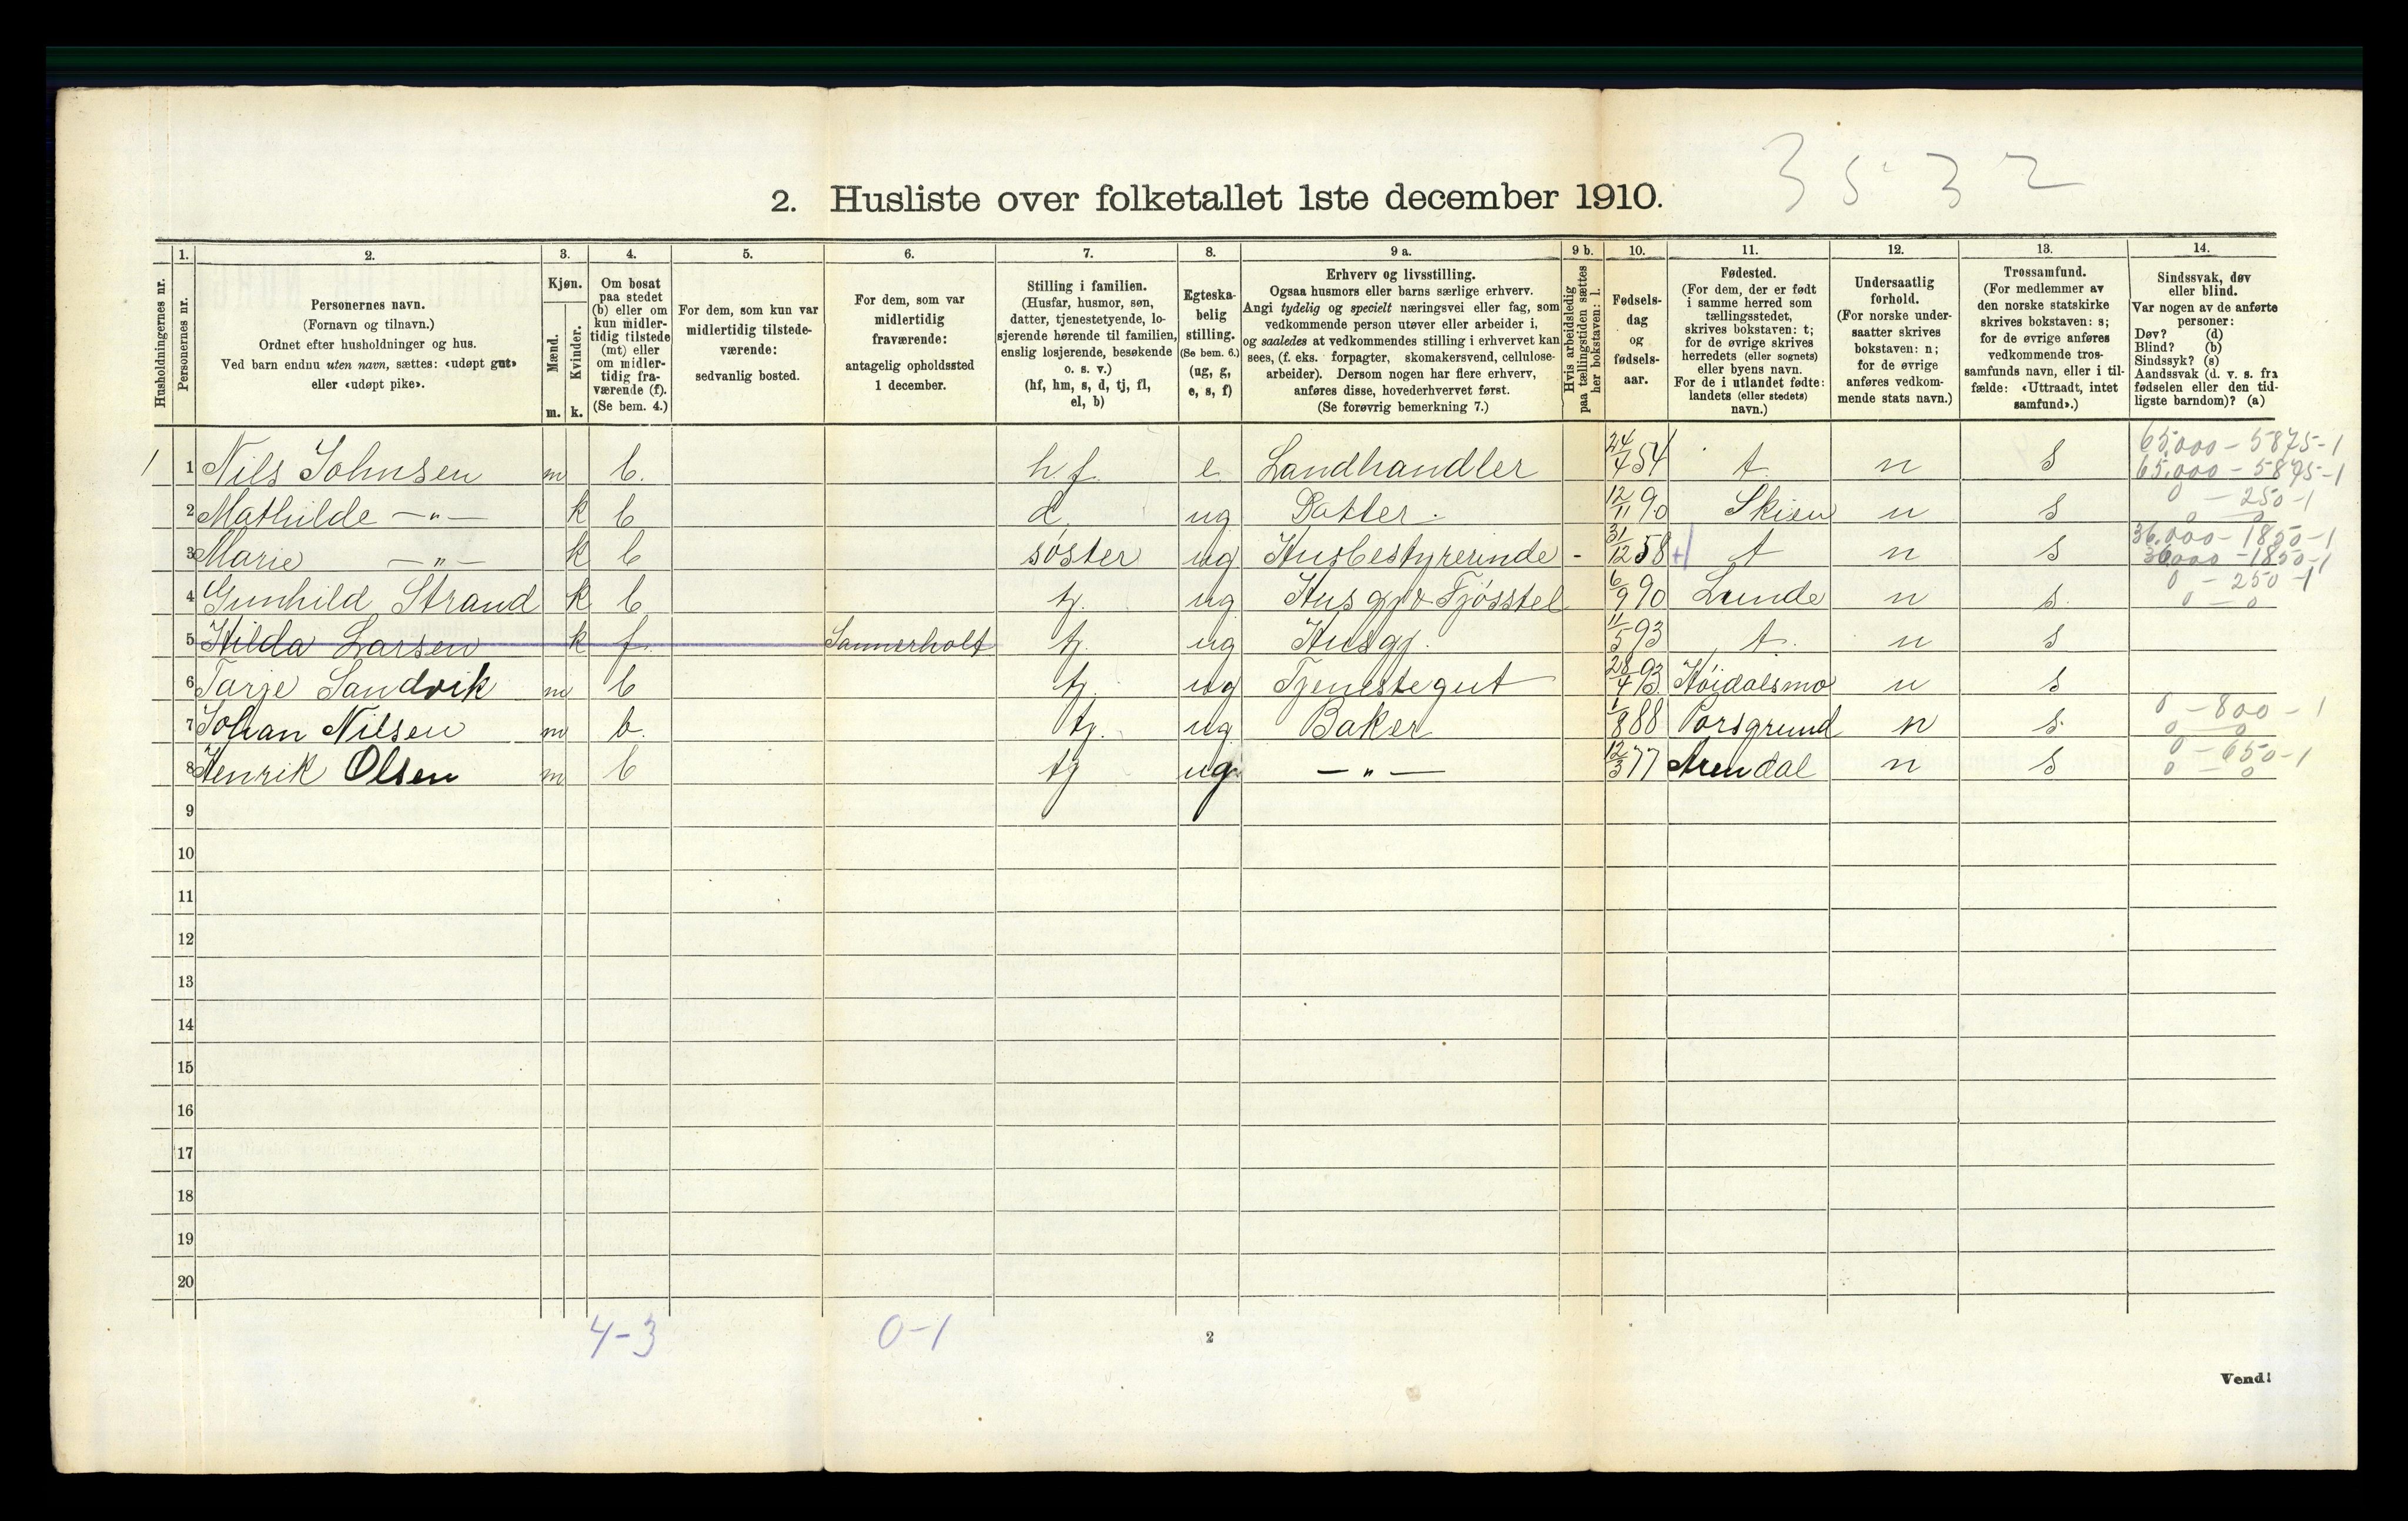 3532
2. Husliste over folketallet 1ste december 1910.
Husholdningernes nr.
1. Personernes nr.
2. Personernes navn.
(Fornavn og tilnavn.)
Ordnet efter husholdninger og hus.
Ved barn endnu uten navn, sættes: «udøpt gut»
eller «udøpt pike».
3. Kjøn.
Mænd. m.
Kvinder. k.
4. Om bosat
paa stedet
(b) eller om
kun midler-
tidig tilstede
(mt) eller
om midler-
tidig fra-
værende (f).
(Se bem. 4.)
5. For dem, som kun var
midlertidig tilstede-
værende:
sedvanlig bosted.
6. For dem, som var
midlertidig
fraværende:
antagelig opholdssted
1 december.
7. Stilling i familien.
(Husfar, husmor, søn,
datter, tjenestetyende, lo-
sjerende hørende til familien,
enslig losjerende, besøkende
o. s. v.)
(hf, hm, s, d, tj, fl,
el, b)
8. Egteska-
belig
stilling.
(Se bem. 6.)
(ug, g,
e, s, f)
9 a. Erhverv og livsstilling.
Ogsaa husmors eller barns særlige erhverv.
Angi tydelig og specielt næringsvei eller fag, som
vedkommende person utøver eller arbeider i,
og saaledes at vedkommendes stilling i erhvervet kan
sees, (f. eks. forpagter, skomakersvend, cellulose-
arbeider). Dersom nogen har flere erhverv,
anføres disse, hovederhvervet først.
(Se forøvrig bemerkning 7.)
9 b. Hvis arbeidsledig
paa tællingstiden sættes
her bokstaven: l.
10. Fødsels-
dag
og
fødsels-
aar.
11. Fødested.
(For dem, der er født
i samme herred som
tællingsstedet,
skrives bokstaven: t;
for de øvrige skrives
herredets (eller sognets)
eller byens navn.
For de i utlandet fødte:
landets (eller stedets)
navn.)
12. Undersaatlig
forhold.
(For norske under-
saatter skrives
bokstaven: n;
for de øvrige
anføres vedkom-
mende stats navn.)
13. Trossamfund.
(For medlemmer av
den norske statskirke
skrives bokstaven: s;
for de øvrige anføres
vedkommende tros-
samfunds navn, eller i til-
fælde: «Uttraadt, intet
samfund».)
14. Sindssvak, døv
eller blind.
Var nogen av de anførte
personer:
Døv? (d)
Blind? (b)
Sindssyk? (s)
Aandssvak (d. v. s. fra
fødselen eller den tid-
ligste barndom)? (a)
1 1 Nils Johnsen m b. h.f. e. Landhandler 24/4 54 t. n s 65.000 - 5875 - 1
65.000 - 5875 - 1
2 Mathilde —"— k b d. ug Datter. 12/11 90 Skien n s 0 - 250 - 1
0 - 0
3 Marie —"— k b søster ug Husbestyrerinde - 31/12 58 + t n s 36.000 - 1850 - 1
36000 - 1850 - 1
4 Gunhild Strand k b tj. ug Hus gj & Fjøsstel 6/9 90 Lunde n s. 0 - 250 - 1
0 - 0
5 Hilda Larsen k f. Sannerholt tj. ug Husgj. 11/5 93 t. n s
6 Tarje Sandvik m b tj. ug Tjenestegut 28/4 93. Høidalsmo n s
7 Johan Nilsen m b. tj. ug Baker 1/8 88 Porsgrund n s. 0 - 800 - 1
0 - 0
8 Henrik Olsen m b tj ug. —"— 12/3 77 Arendal n s 0 - 650 - 1
0 - 0
9
10
11
12
13
14
15
16
17
18
19
20
4-3 0-1
2
Vend!